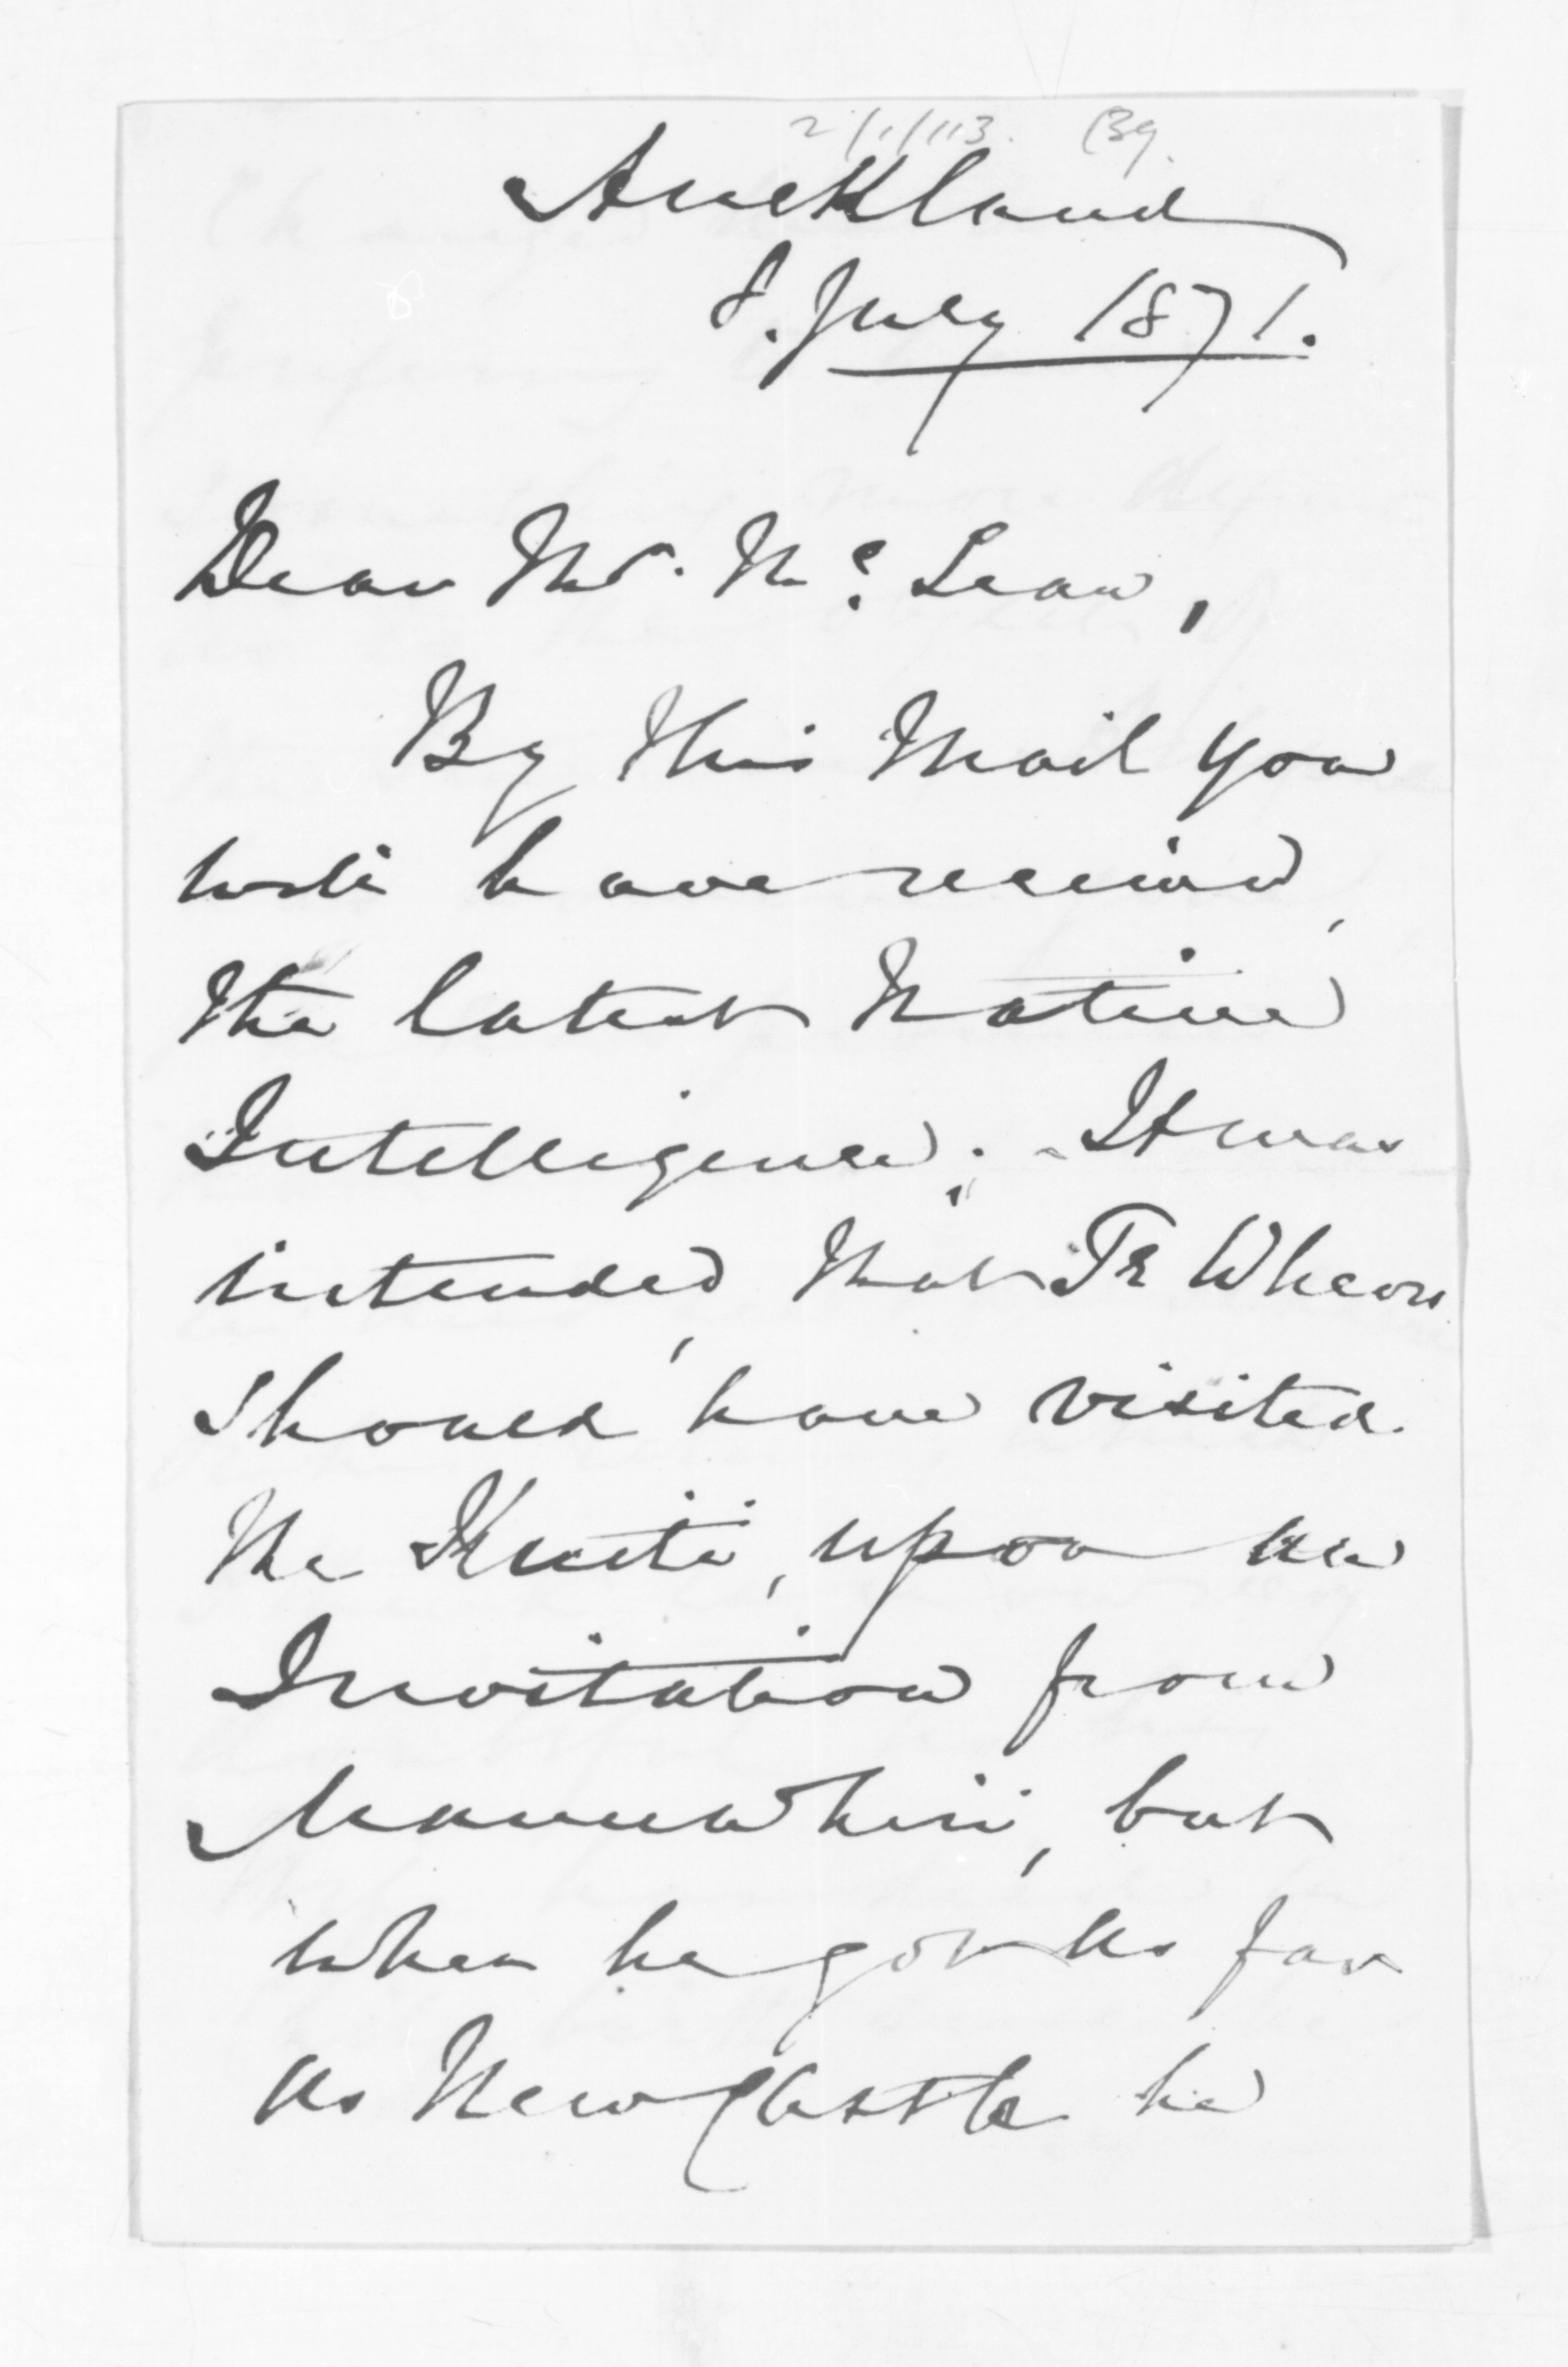 2/1/113. 139.
Auckland
8. July 1871.
Dear Mr. Mc Lean,
By this Mail you
will have received
the latest Native
Intelligence; It was
intended, that Te Wheoro
should have visited
the Kuiti, upon an
Invitation from
Manuwhiri, but
when he got as far
as New Castle he